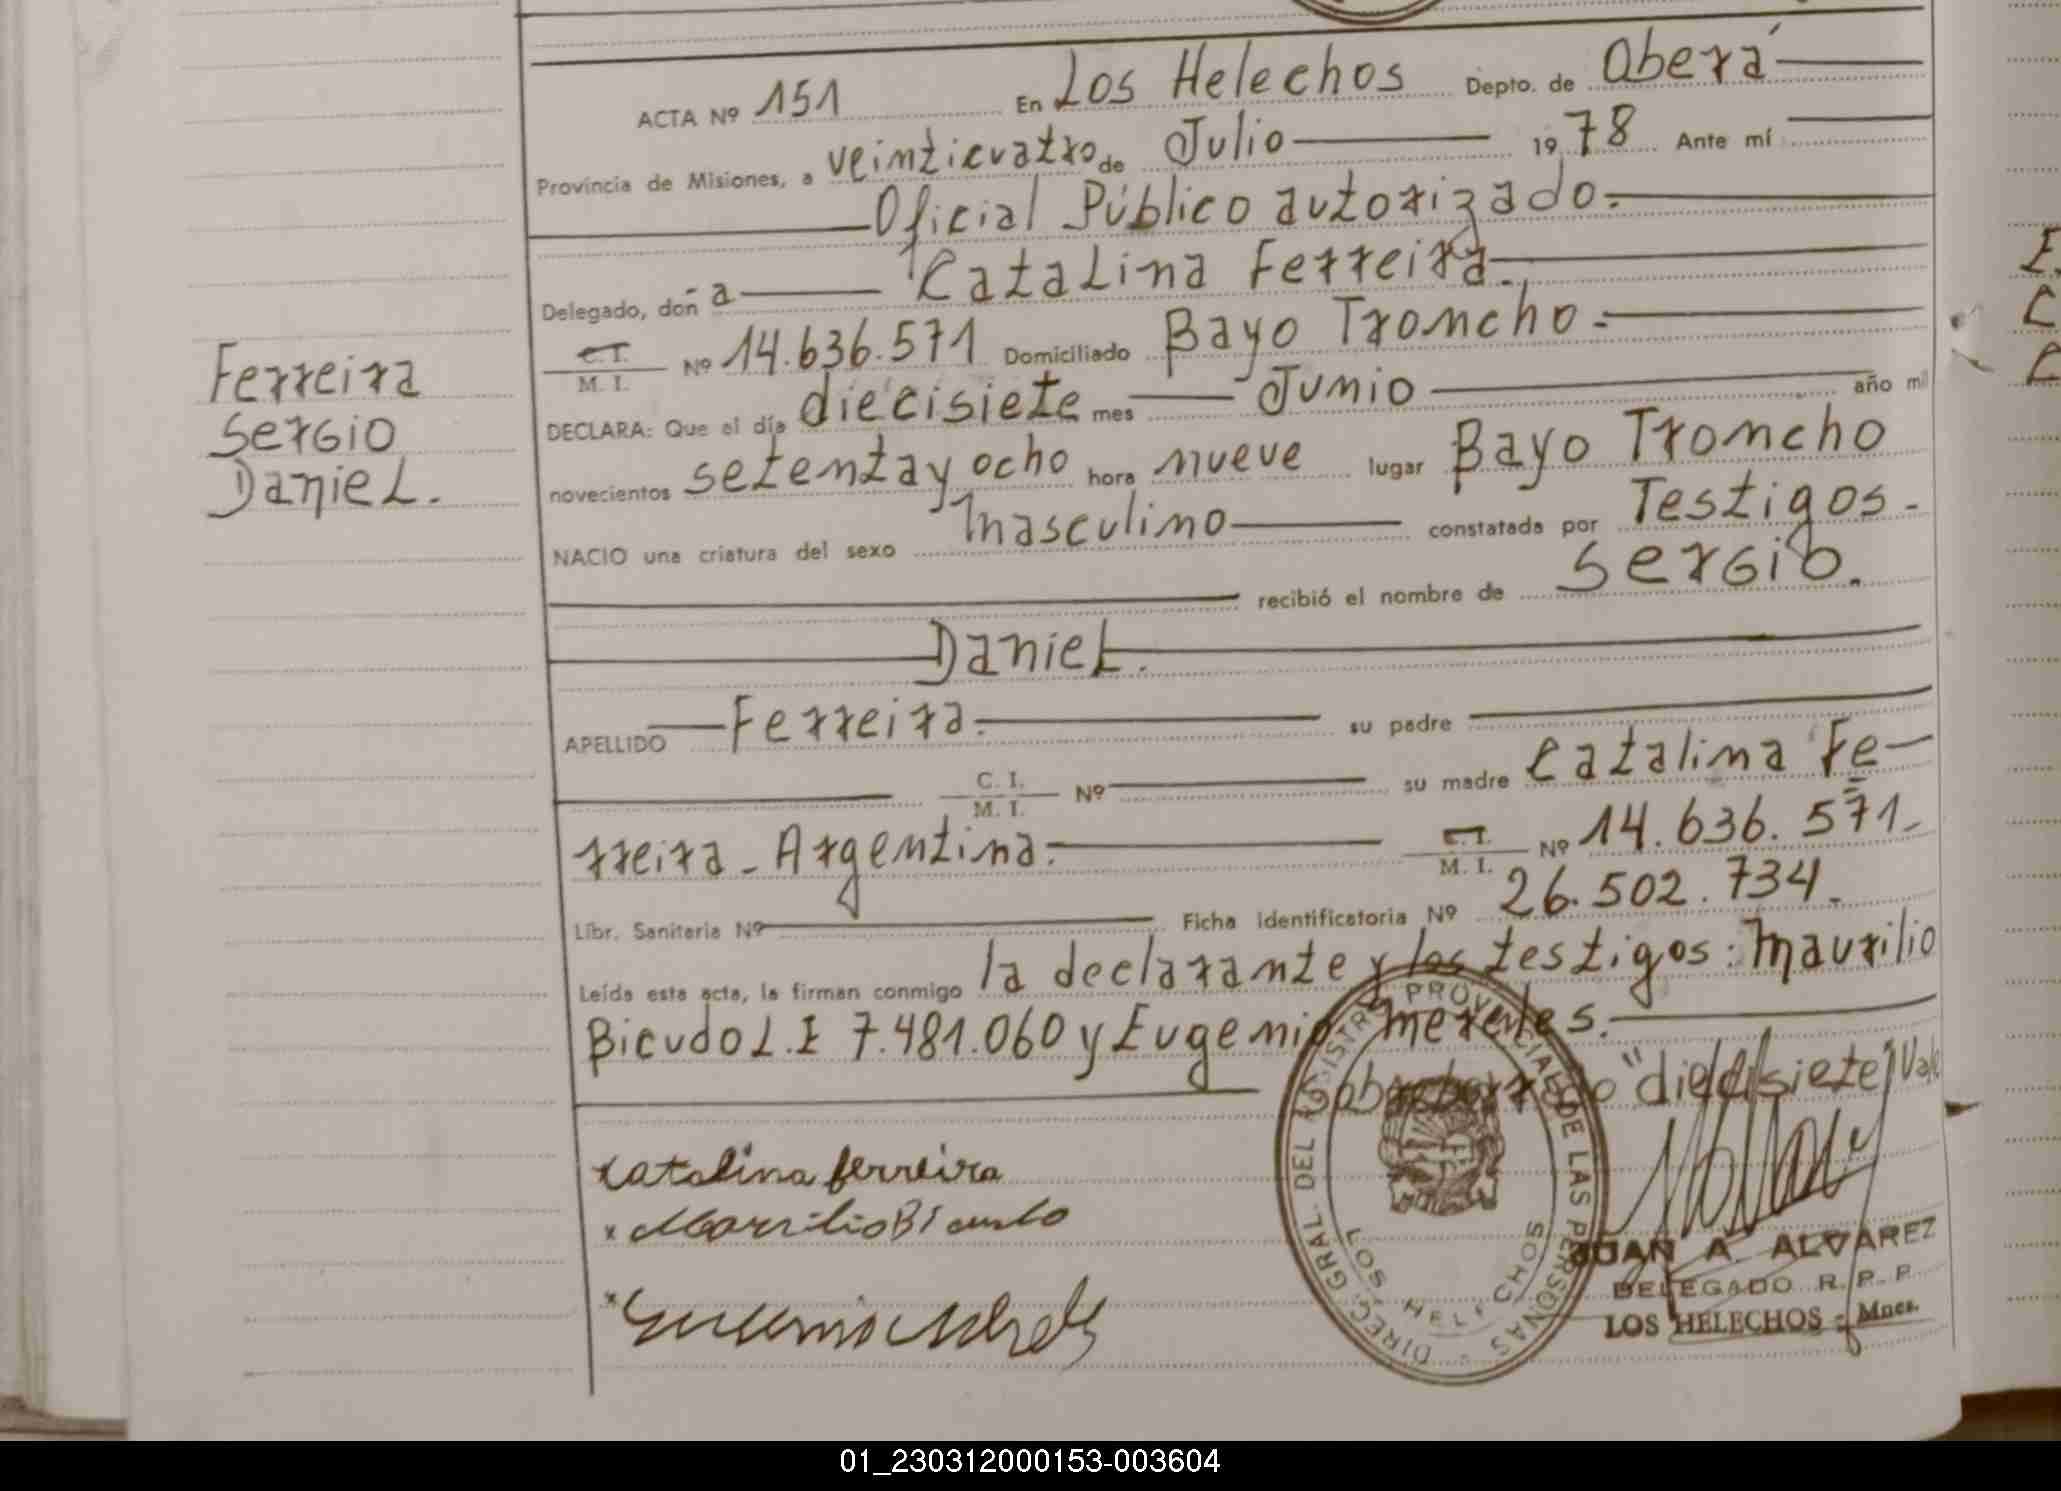 ACTA Nº 151 En Los Helechos Depto. de Oberá
Provincia de Misiones, a veinticuatro de Julio 1978 Ante mí
Oficial Público autorizado.
Delegado, doña Catalina Ferreira.
C.I. M. I. Nº 14.636.571 Domiciliado Bayo Troncho.
DECLARA: Que el día diecisiete mes Junio año mil
novecientos setenta y ocho hora nueve lugar Bayo Troncho
NACIO una criatura del sexo masculino constatada por Testigos.
recibió el nombre de Sergio.
Daniel.
Ferreira
Sergio
Daniel.
APELLIDO Ferreira. su padre
C. I. M. I. Nº su madre Catalina Fe-
rreira - Argentina. C.I. M. I. Nº 14.636.571.
Libr. Sanitaria Nº Ficha identificatoria Nº 26.502.734.
Leída esta acta, la firman conmigo la declarante y los testigos: Maurilio
Bicudo L.E 7.481.060 y Eugenio Mereles.
Sobreborrado "diecisiete" Vale
Catalina ferreira
x Maurilio Bicudo
x
DIREC. GRAL. DEL REGISTRO PROVINCIAL DE LAS PERSONAS
LOS HELECHOS
JUAN A. ALVAREZ
DELEGADO R. P. P.
LOS HELECHOS - Mnes.
01_230312000153-003604